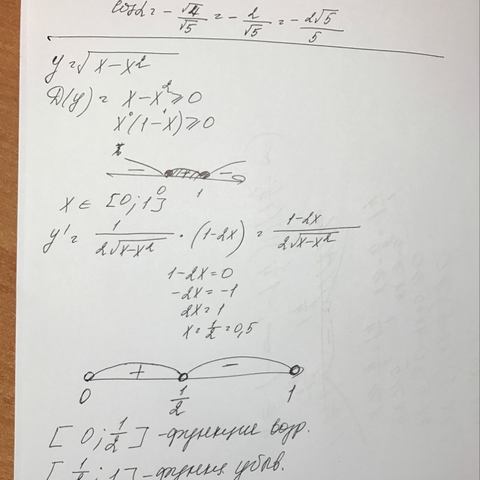 cosα = - √4/√5 = - 2/√5 = - 2√5/5
y = √x-x²
D(y) = x-x² ≥ 0
x(1-x) ≥ 0
- + -
0 1
x ∈ [0;1]
y' = 1/2√x-x² · (1-2x) = 1-2x/2√x-x²
1-2x=0
-2x=-1
2x=1
x=1/2=0,5
+ -
0 1/2 1
[0;1/2] -функция возр.
[1/2;1] -функция убыв.